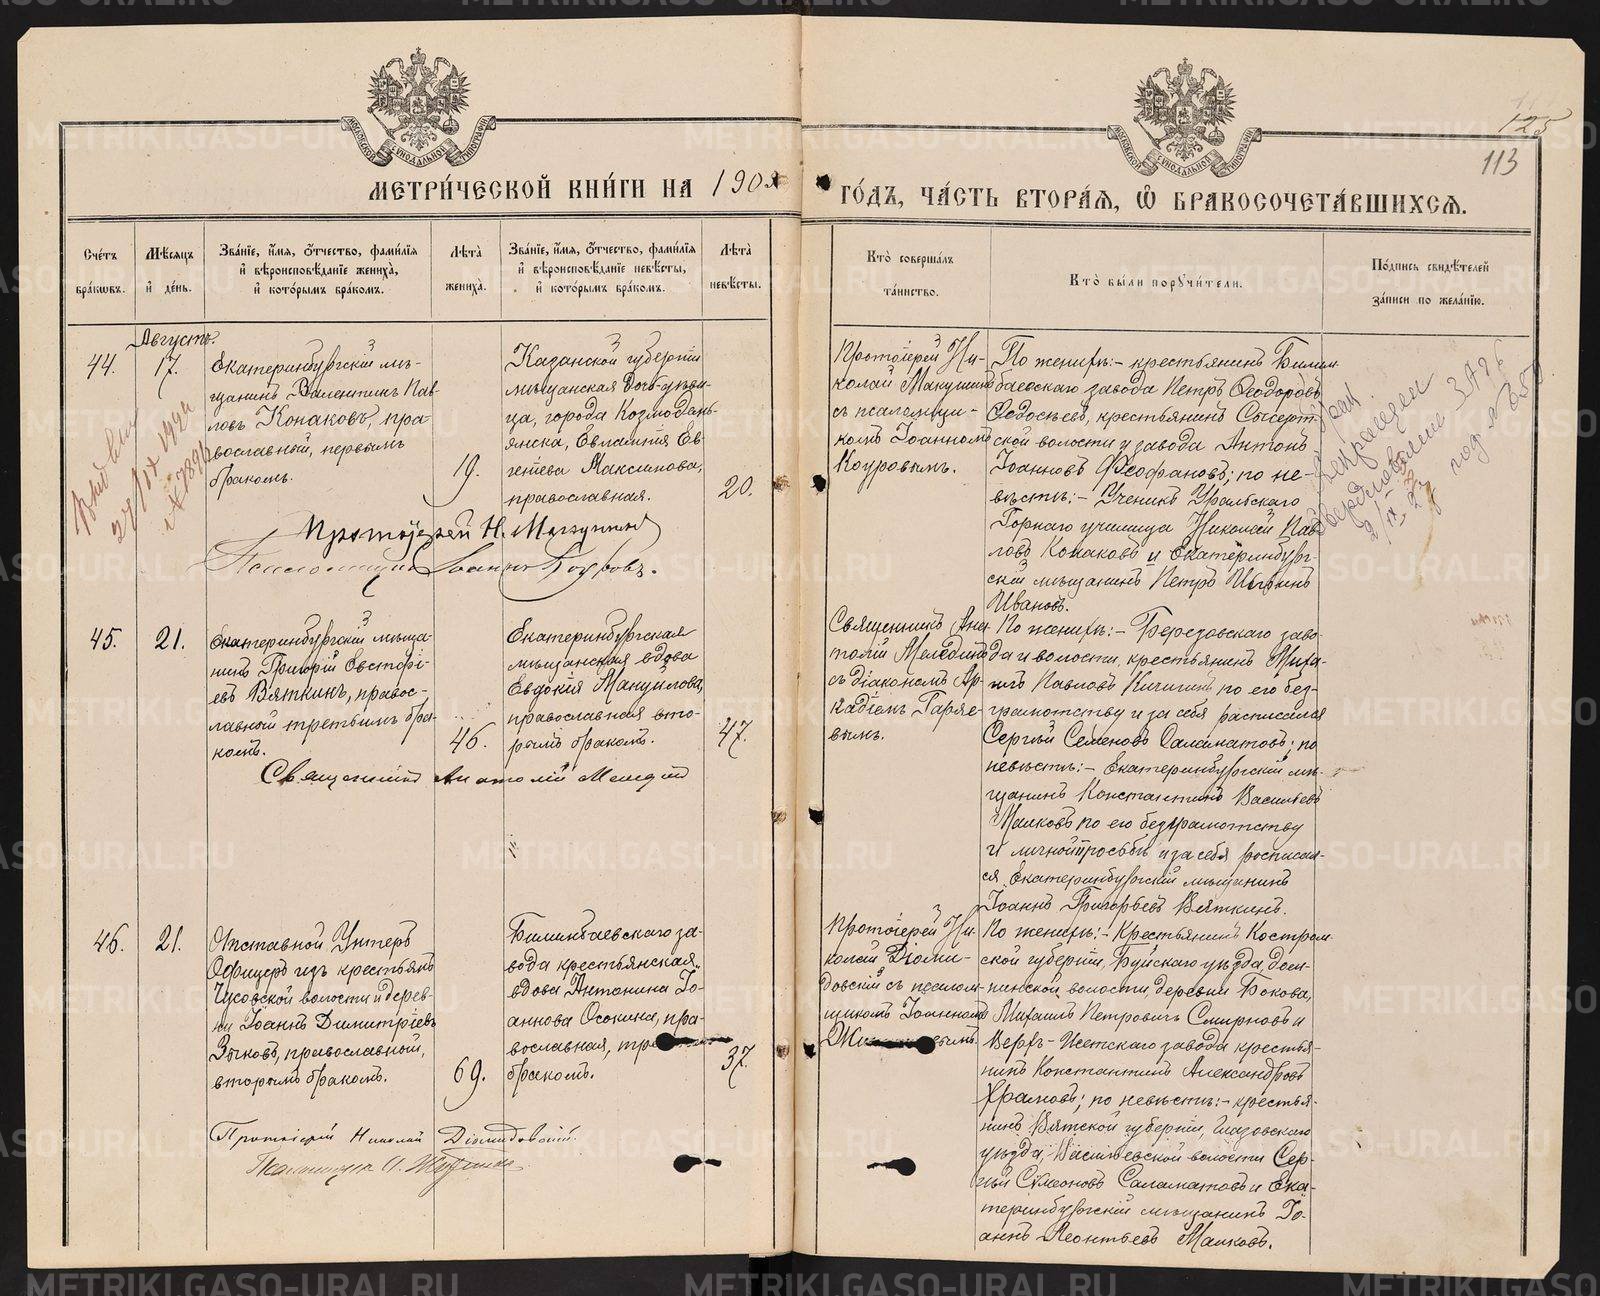 125
113
МЕТРИ́ЧЕСКОЙ КНИ́ГИ НА 190
ГО́ДЪ, ЧА́СТЬ ВТОРА́Я, Ѽ БРАКОСОЧЕТА́ВШИХСЯ.
Сче́тъ бра́кѡвъ.
Мѣ́сяцъ и҆ де́нь.
Зва́нїе, и҆́мя, ѻ҆́тчество, фами́лїя
и҆ вѣроисповѣ́данїе жениха̀,
и҆ кото́рымъ бра́комъ.
Лѣта̀ жениха̀.
Зва́нїе, и҆́мя, ѻ҆́тчество, фами́лїя
и҆ вѣроисповѣ́данїе невѣ́сты,
и҆ кото́рымъ бра́комъ.
Лѣта̀ невѣ́сты.
Кто̀ соверша́лъ
та́инство.
Кто̀ бы́ли порꙋчи́тели.
По́дпись свидѣ́телей
за́писи по жела́нїю.
Августъ.
44.
17.
Екатеринбургскій мѣ-
щанинъ Валентинъ Пав-
ловъ Конаковъ, пра-
вославный, первымъ
бракомъ.
19.
Казанской губерніи
мѣщанская дочь-дѣви-
ца, города Козмодемь-
янска, Евлампія Ев-
геніева Максимова,
православная.
20.
Протоіерей Ни-
колай Макушинъ
съ псаломщи-
комъ Іоанномъ
Коуровымъ.
По женихѣ:- крестьянинъ Билим-
баевскаго завода Петръ Ѳеодоровъ
Ѳедосѣевъ, крестьянинъ Сысерт-
ской волости и завода Антонъ
Іоанновъ Ѳеофановъ; по не-
вѣстѣ:- Ученикъ Уральскаго
Горнаго училища Николай Пав-
ловъ Конаковъ и Екатеринбург-
скій мѣщанинъ Петръ
Ивановъ.
Протоіерей Н. Макушинъ
Псаломщикъ Іоаннъ Коуровъ.
45.
21.
Екатеринбургскій мѣща-
нинъ Григорій Евстафі-
евъ Вяткинъ, правос-
лавной третьимъ бра-
комъ.
46.
Екатеринбургская
мѣщанская вдова
Евдокія Мануилова,
православная вто-
рымъ бракомъ.
47.
Священникъ Ана-
толій Мелединъ
съ діакономъ Ар-
кадіемъ Гаряе-
вымъ.
По женихѣ:- Березовскаго заво-
да и волости, крестьянинъ Миха-
илъ Павловъ Кичигинъ по его без-
грамотству и за себя расписался
Сергѣй Семеновъ Саламатовъ; по
невѣстѣ:- Екатеринбургскій мѣ-
щанинъ Константинъ Васильевъ
Малковъ по его безграмотству
и личной просьбѣ и за себя росписал-
ся Екатеринбургскій мѣщанинъ
Іоаннъ Григорьевъ Вяткинъ.
Священникъ Анатолій Меледин
46.
21.
Отставной Унтеръ
Офицеръ изъ крестьянъ
Чусовской волости и дерев-
ни Іоаннъ Димитріевъ
Зыковъ, православной,
вторымъ бракомъ.
69.
Билимбаевскаго за-
вода крестьянская
вдова Антонина Іо-
аннова Осокина, пра-
вославная,
бракомъ.
37.
Протоіерей Ни-
колай Діоми-
довскій съ псалом-
щикомъ Іоанномъ
По женихѣ:- Крестьянинъ Костром-
ской губерніи, Буйскаго уѣзда, дом-
нинской волости, деревни Бокова,
Михаилъ Петровичъ Смирновъ и
Верхъ-Исетскаго завода крестья-
нинъ Константинъ Александровъ
Храмовъ; по невѣстѣ:- крестья-
нинъ Вятской губерніи, Глазовскаго
уѣзда, Васильевской волости Сер-
гѣй Сѵмеоновъ Саламатовъ и Ека-
теринбургскій мѣщанинъ Іо-
аннъ Леонтьевъ Малковъ.
Протоіерей Николай Діомидовскій.